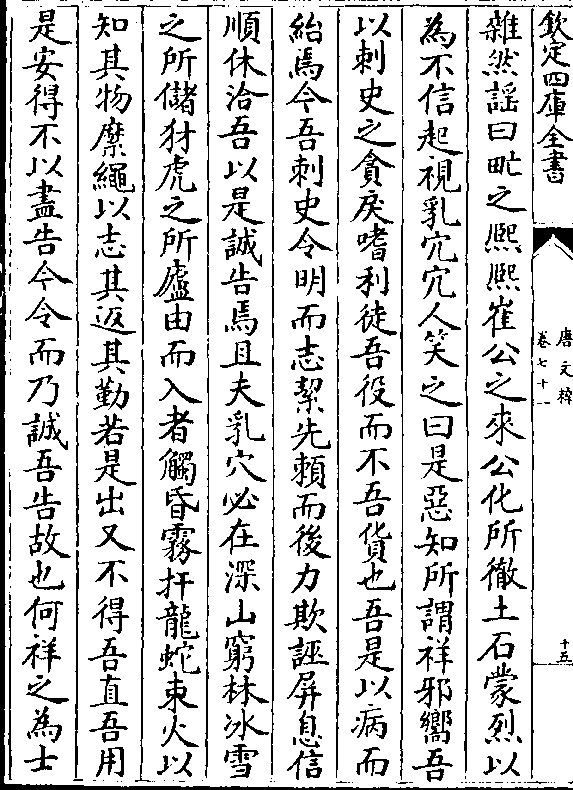 欽定四庫全書
唐文粹
卷七十一
十五
雜然謡曰甿之熈熈崔公之來公化所徹土石蒙烈以
為不信起視乳穴穴人笑之曰是惡知所謂祥邪嚮吾
以刺史之貪戾嗜利徒吾役而不吾貨也吾是以病而
紿焉今吾刺史令明而志㓗先頼而後力欺誣屏息信
順休洽吾以是誠告焉且夫乳穴必在深山窮林冰雪
之所儲豺虎之所廬由而入者觸昏霧扞龍蛇束火以
知其物縻繩以志其返其勤若是出又不得吾直吾用
是安得不以盡告今令而乃誠吾告故也何祥之為士